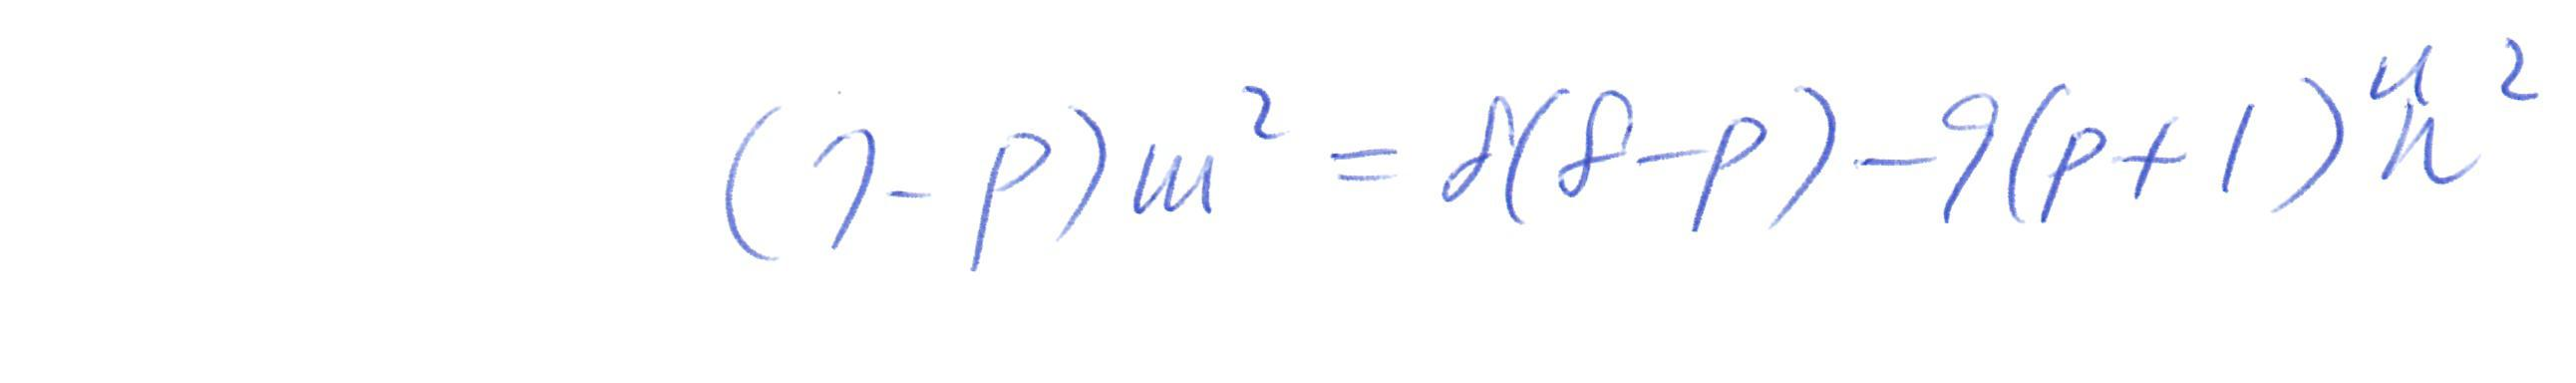 (7-p)m² = 8(8-p)-9(p+1)ⁿn²